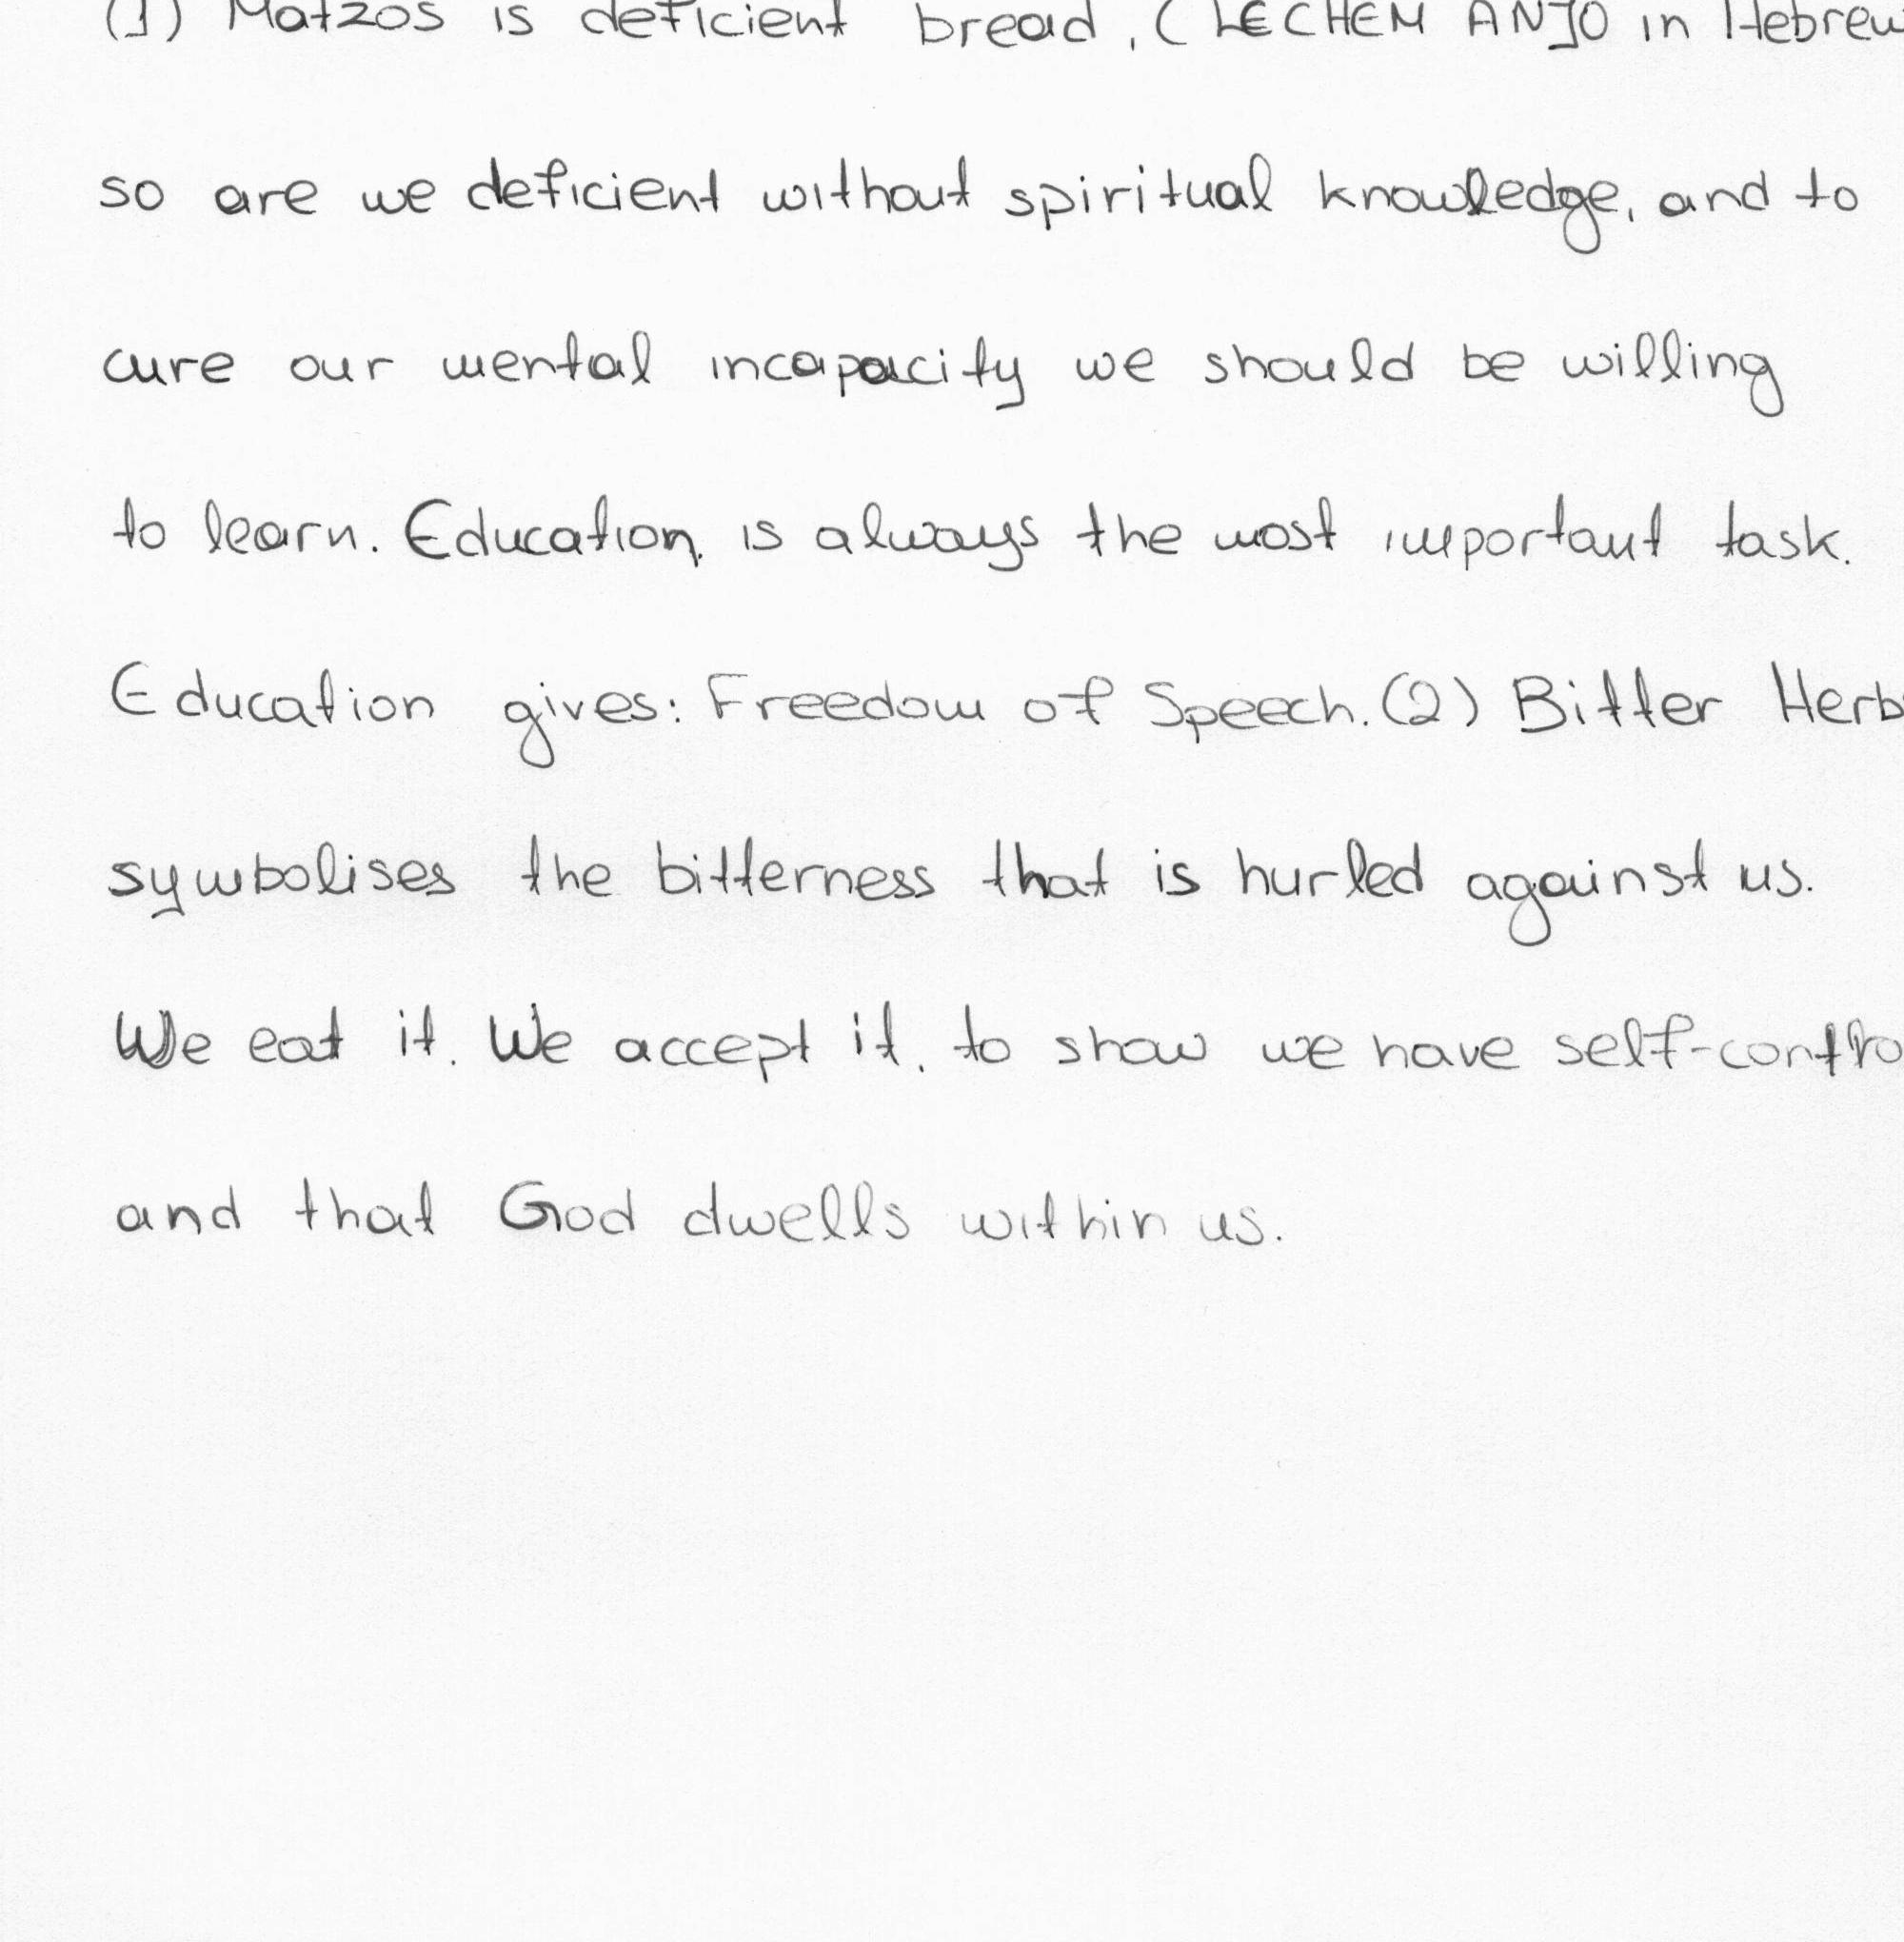 (1) Matzos is deficient bread, (LECHEM ANJO in Hebrew
so are we deficient without spiritual knowledge, and to
cure our mental incapacity we should be willing
to learn. Education, is always the most important task.
Education gives: Freedom of Speech. (2) Bitter Herb
symbolises the bitterness that is hurled against us.
We eat it. We accept it, to show we have self-contro
and that God dwells within us.